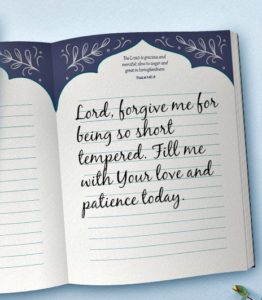 The LORD is gracious and
merciful; slow to anger and
great in lovingkindness.
Psalm 145:8
Lord, forgive me for
being so short
tempered. Fill me
with Your love and
patience today.